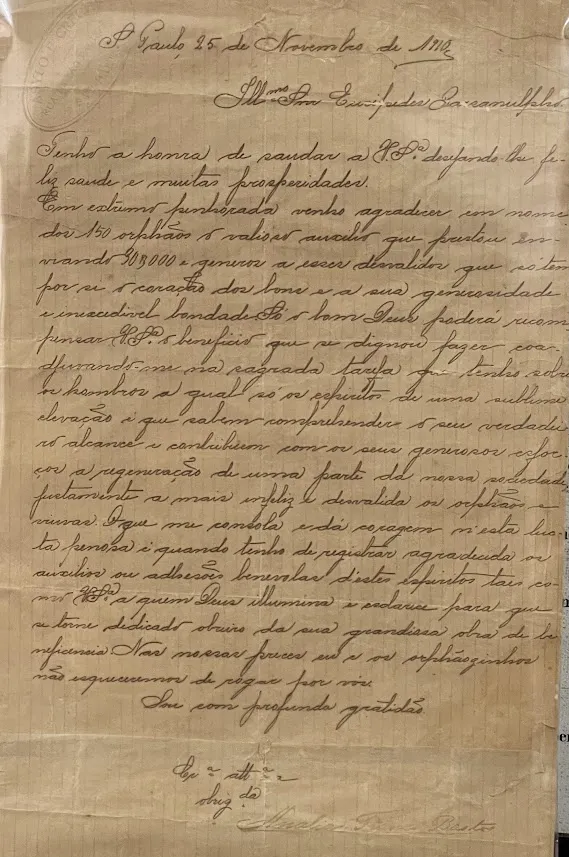 S. Paulo, 25 de Novembro de 1910
Illmo Snr Euripedes Barsanulpho.
Tenho a honra de saudar a V.Sª. desejando-lhe fe-
liz saude e muitas prosperidades.
Em extremo penhorada venho agradecer em nome
dos 150 orphãos o valioso auxilio que prestou en-
viando 30$000 e generos a esses desvalidos que só tem
por si o coração dos bons e a sua generosidade
e inexcedivel bondade. Só o bom Deus poderá recom
pensar V.Sª. o beneficio que se dignou fazer coa-
djuvando-me na sagrada tarefa que tenho sobre
os hombros a qual só os espiritos de uma sublime
elevação é que sabem comprehender o seu verdadei
ro alcance e contribuem com os seus generosos esfor-
ços a regeneração de uma parte da nossa sociedade,
justamente a mais infeliz e desvalida os orphãos e
viuvas. O que me consola e dá coragem n'esta luc-
ta penosa é quando tenho de registrar agradecida os
auxilios ou adhesões benevolas d'estes espiritos taes co-
mo V.Sª. a quem Deus illumina e esclarece para que
se torne dedicado obreiro da sua grandiosa obra de be
neficencia. Nas nossas preces eu e os orphãosinhos
não esquecemos de rogar por vós.
Sou com profunda gratidão
Crª attª
obrigda
Bastos